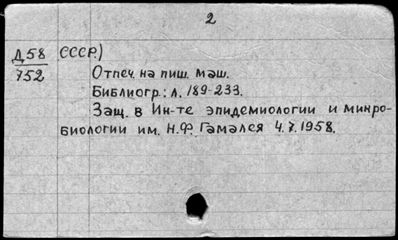 2
Д58 СССР.)
752 Отпеч. на пиш. маш.
Библиогр.: л. 189-233.
Защ. в Ин-те эпидемиологии и микро-
биологии им. Н.Ф. Гамалея 4.7.1958.